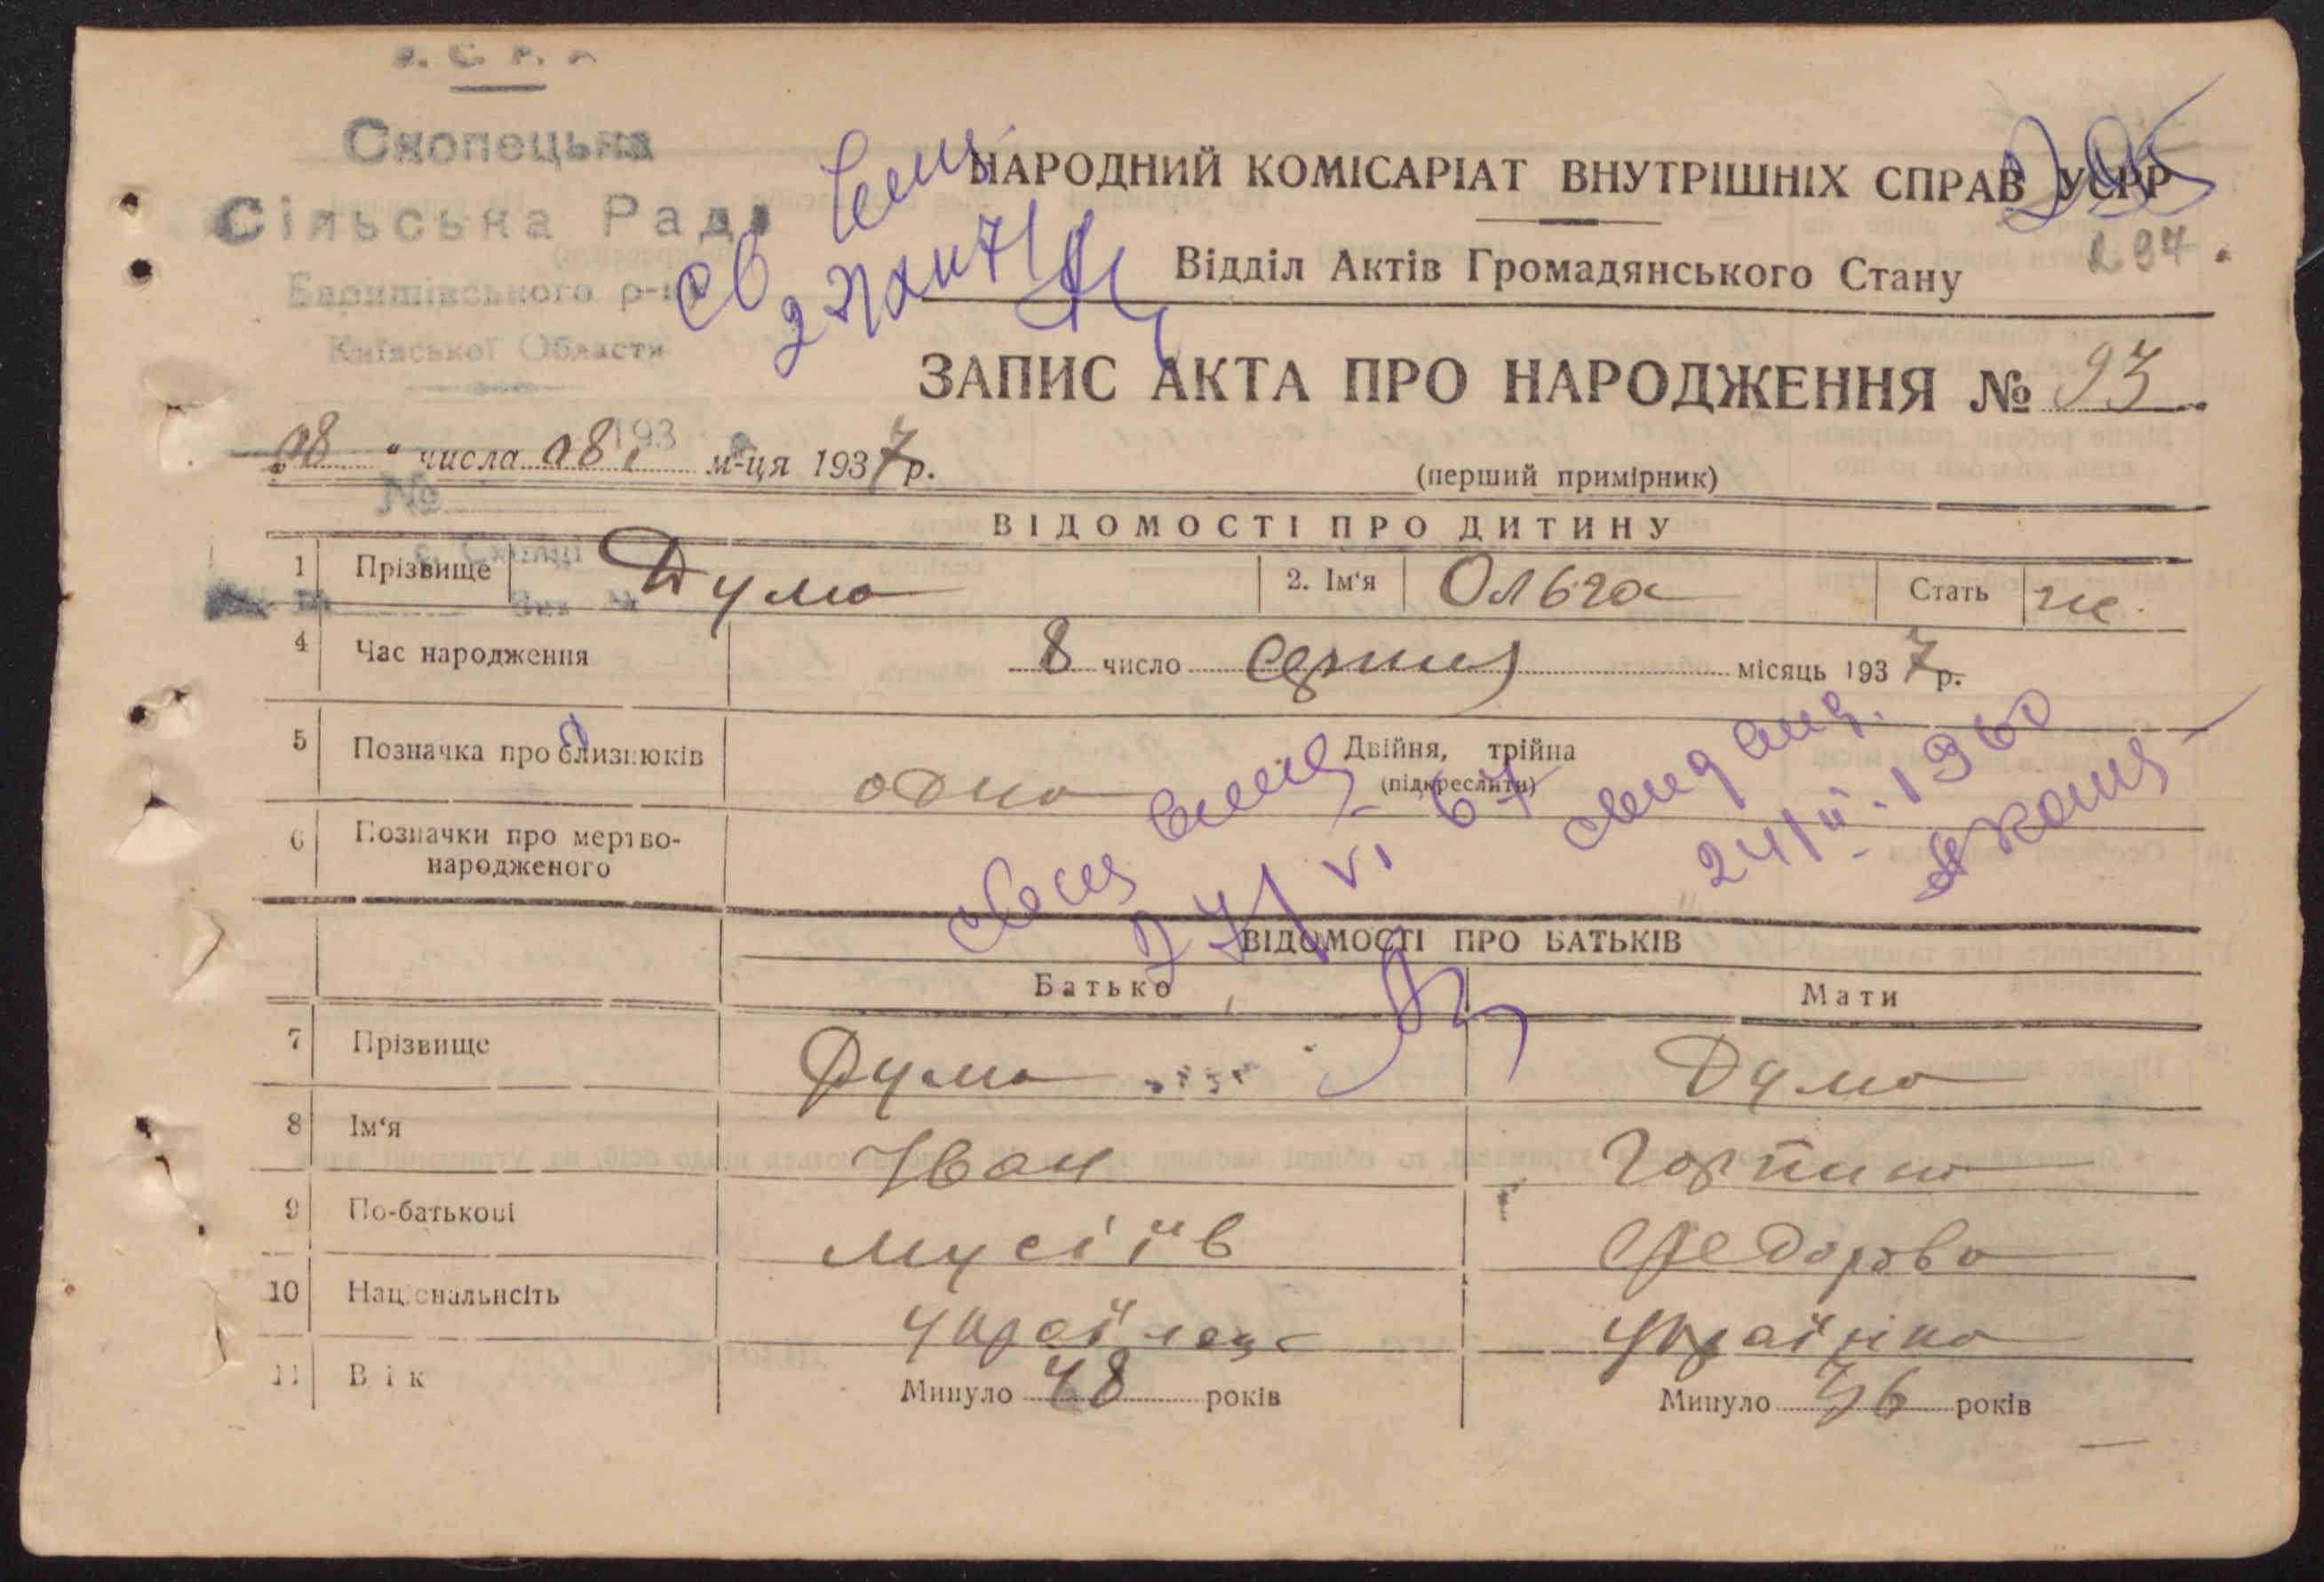 У. С. Р. Р.
Скопецька
Сільська Рада
Баришівського р-ну
Київської Области
193
№
с. Скопці
НАРОДНИЙ КОМІСАРІАТ ВНУТРІШНІХ СПРАВ УСРР
297
Відділ Актів Громадянського Стану
ЗАПИС АКТА ПРО НАРОДЖЕННЯ № 93
„08“ числа 08 м-ця 1937 р.
(перший примірник)
ВІДОМОСТІ ПРО ДИТИНУ
1 Прізвище Дума 2. Ім'я Ольга Стать ж.
4 Час народження 8 число серпня місяць 1937 р.
5 Позначка про близнюків одна Двійня, трійна
(підкреслити)
6 Позначки про мертво-
народженого
27/VI-67
24/II-1960
ВІДОМОСТІ ПРО БАТЬКІВ
Батько Мати
7 Прізвище Дума Дума
8 Ім'я Іван Горпина
9 По-батькові Мусіїв Федорова
10 Національність Українец Українка
11 Вік Минуло 48 років Минуло 46 років